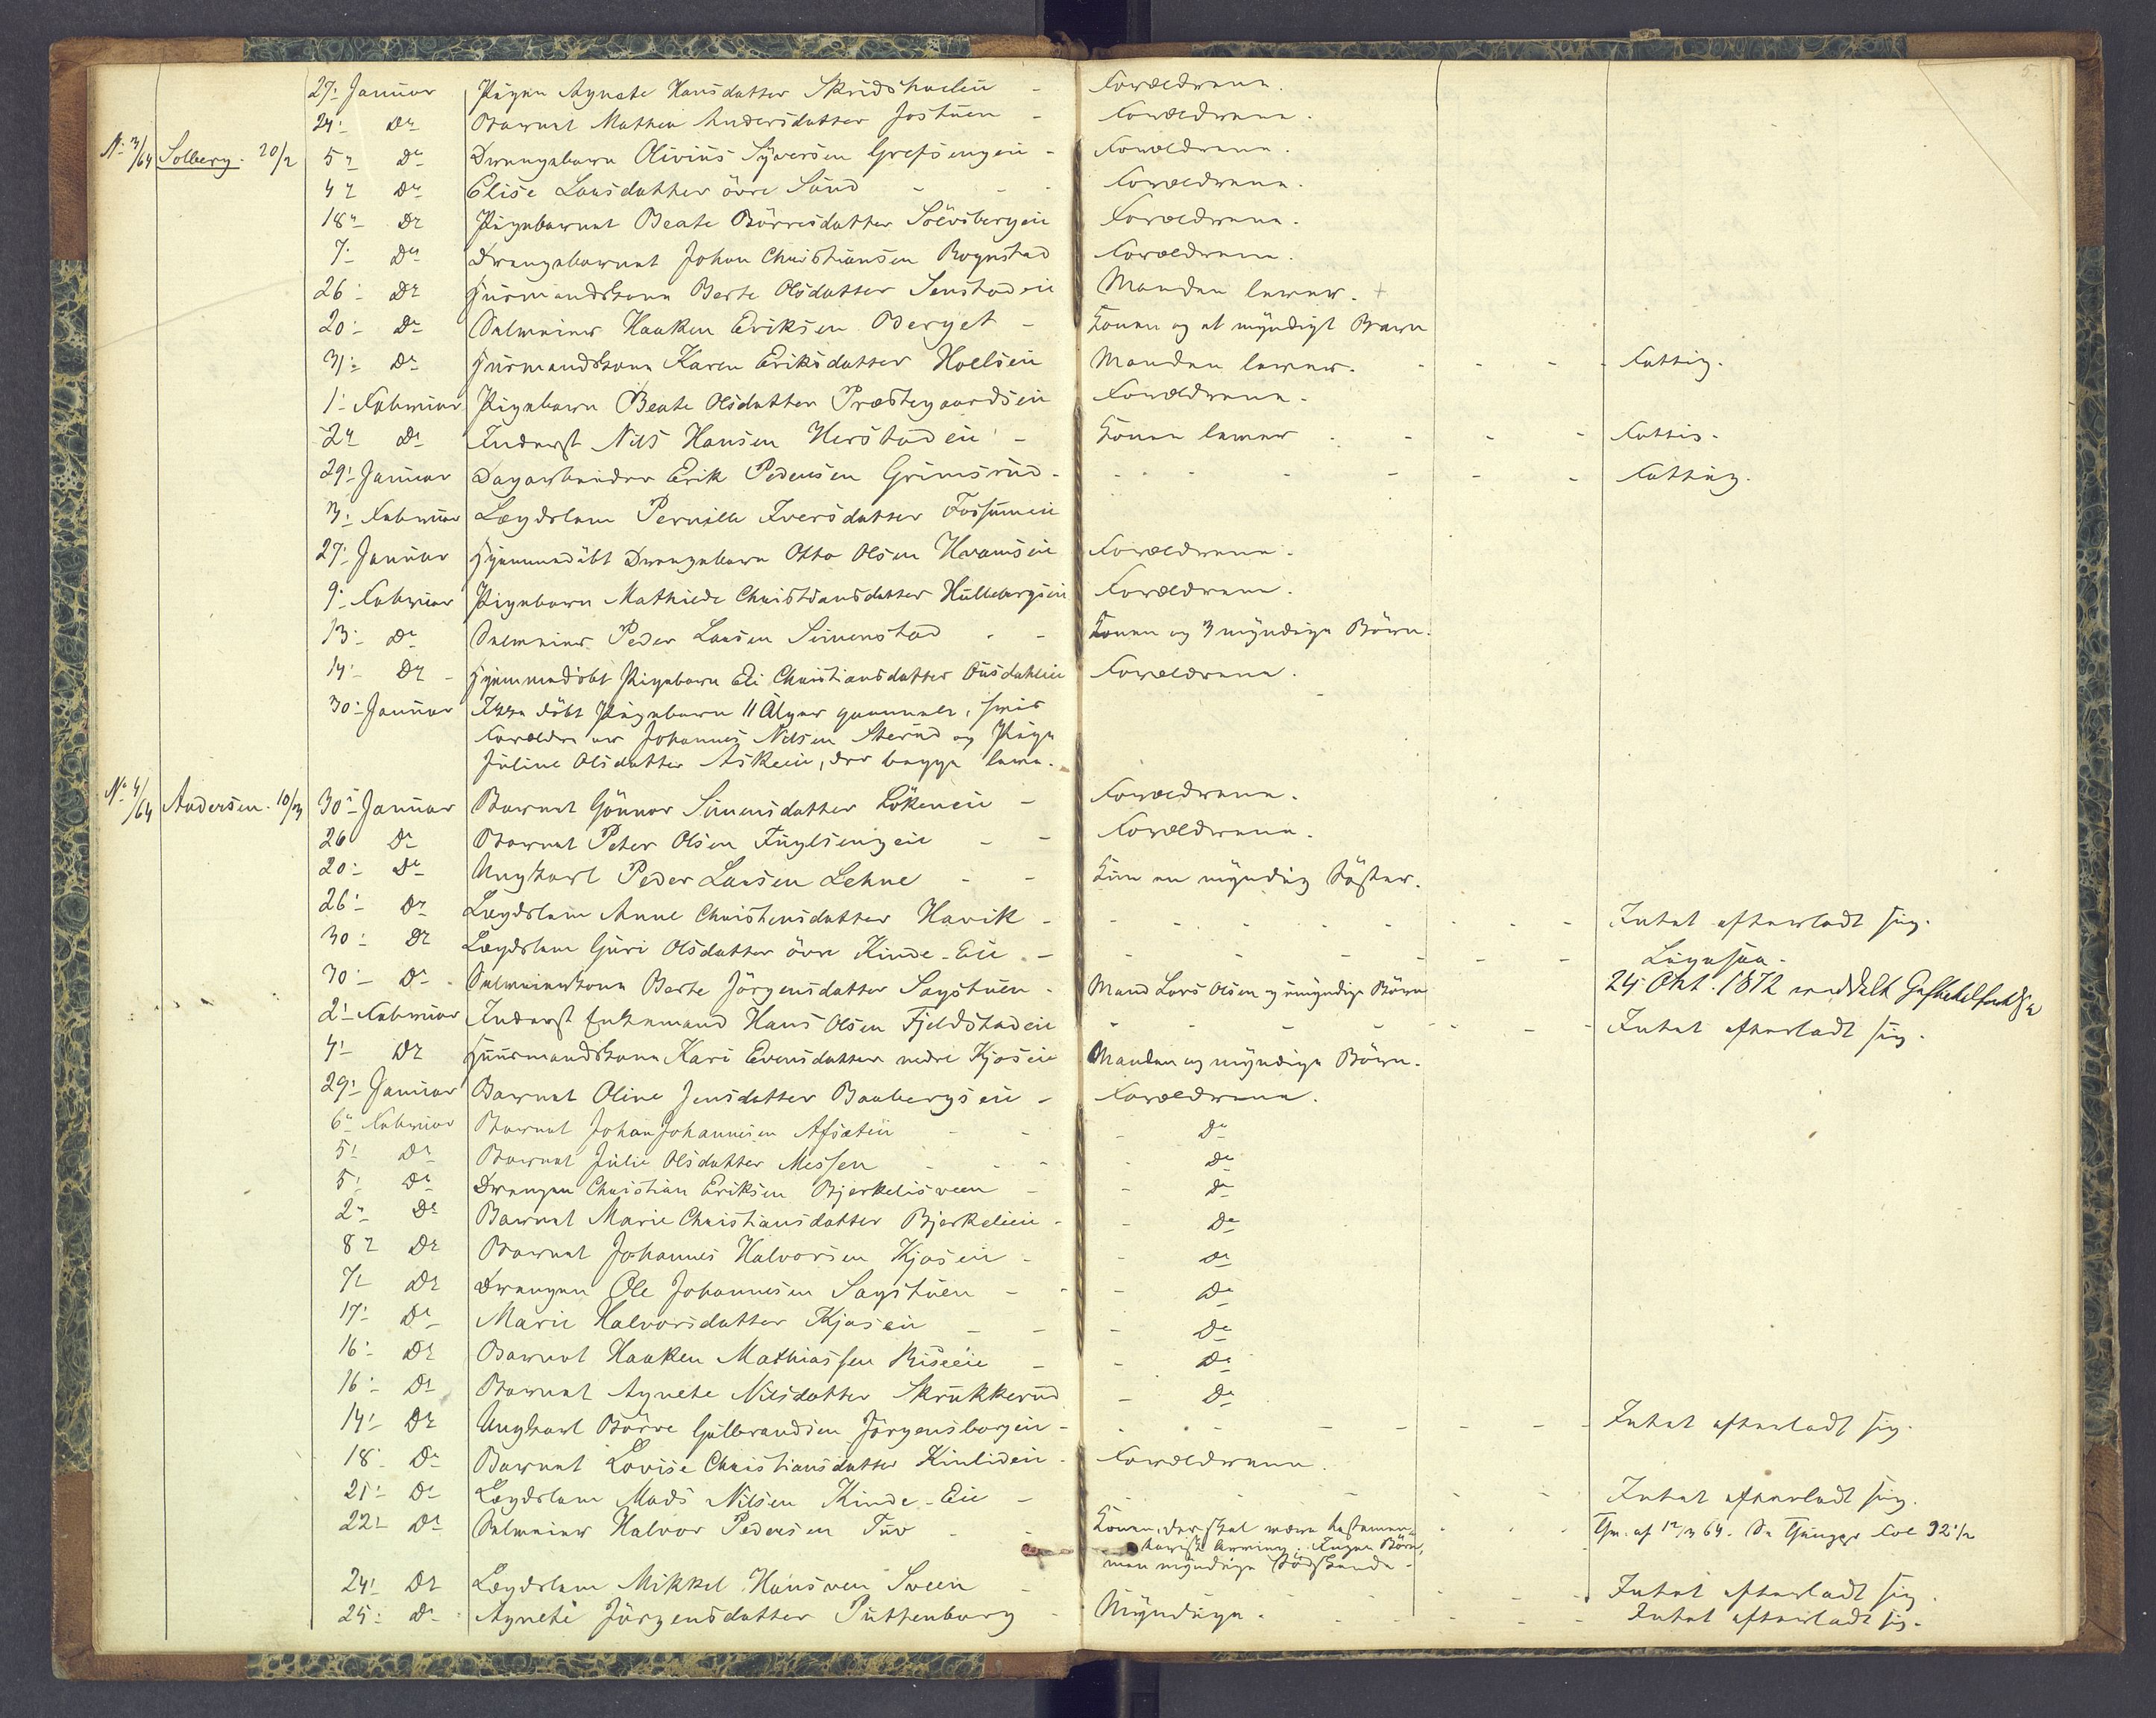 5.
27. Januar Pigen Agnete Hansdatter - Forældrene.
24. Do Barnet Mathea Andersdatter Jostuen - Forældrene.
No 3/64 Solberg. 20/2 5 Do Drengebarn Olivius Syversen Grefsengen - Forældrene.
4 Do Elise Larsdatter övre Sund - - - Forældrene.
18 Do Pigebarnet Beate Börresdatter Sölvsbergeie Forældrene.
7 Do Drengebarnet Johan Christiansen Rognstad Forældrene.
26 Do Huusmandskone Berte Olsdatter Senstadeie Manden lever. +
20 Do Selveier Haaken Eriksen Berget - Konen og et myndigt Barn
31 Do Huusmandskone Karen Eriksdatter Hoelseie Manden lever. - - - Fattig.
1 Februar Pigebarn Beate Olsdatter Præstegaardseie Forældrene.
2 Do Inderst Nils Hansen Herstadeie - Konen lever - - - Fattig.
29 Januar Dagarbeider Erik Pedersen Grimsrud - - - - - Fattig.
3 Februar Lægdslem Pernille Iversdatter Fossumeie
27 Januar Hjemmedöbt Drengebarn Otto Olsen Hvamseie Forældrene.
9 Februar Pigebarn Mathilde Christiansdatter Hullebergseie Forældrene.
13 Do Selveier Peder Larsen Simenstad - - Konen og 3 myndige Börn.
14 Do Hjemmedöbt Pigebarn Eli Christiansdatter Ausdahleie Forældrene.
30 Januar Ikke döbt Pigebarn 11 gammelt, hvis
Forældre er Johannes Nilsen Sterud og Pige
Juline Olsdatter Askeeie, der begge leve.
No 4/64 Andersen. 10/3 30 Januar Barnet Gönnor Simensdatter Lökeneie - Forældrene.
26 Do Barnet Peter Olsen Fuglsengeie - - Forældrene.
20 Do Ungkarl Peder Larsen Lehne - - Kun en myndig Söster.
26 Do Lægdslem Anne Christensdatter Havik - - - - - Intet efterladt sig.
30 Do Lægdslem Guri Olsdatter övre Kinde-Eie - - - - - Ligesaa.
30 Do Selveierkone Berte Jörgensdatter Sagstuen - Mand Lars Olsen og umyndige Börn 24 Okt. 1872 meddelt
2 Februar Inderst Enkemand Hans Olsen Fjeldstadeie - - - - - Intet efterladt sig.
4 Do Huusmandskone Kari Evensdatter nedre Kjoseie Manden og myndige Börn.
29 Januar Barnet Oline Jensdatter Baabergseie - Forældrene.
6 Februar Barnet Johan Johannesen Afsæteie - - - Do
5 Do Barnet Julie Olsdatter Messen - - - Do
5 Do Drengen Christian Eriksen Bjerkelisveen - - Do
2 Do Barnet Marie Christiansdatter Bjerkelieie - - Do
8 Do Barnet Johannes Halvorsen Kjoseie - - Do
7 Do Drengen Ole Johannesen Sagstuen - - - Do
17 Do Marie Halvorsdatter Kjoseie - - - Do
16 Do Barnet Haaken Mathiassen Riseeie - - Do
16 Do Barnet Agnete Nilsdatter Skrukkerud - Do
14 Do Ungkarl Börre Gulbrandsen Jörgensborgeie - - - - - Intet efterladt sig.
18 Do Barnet Lovise Christiansdatter Kinlideie - Forældrene.
21 Do Lægdslem Mads Nilsen Kinde-Eie - - - - - Intet efterladt sig.
22 Do Selveier Halvor Pedersen Tuv - - Konen, der skal være testamen- - - af 12/3 64. Se Fol 92 1/2
tarisk Arving. Ingen Börn,
men myndige Södskende -
24 Do Lægdslem Mikkel Hansveen Sveen - - - - Intet efterladt sig.
25 Do Agnete Jörgensdatter Puttenborg - Myndige. - - - - Intet efterladt sig.